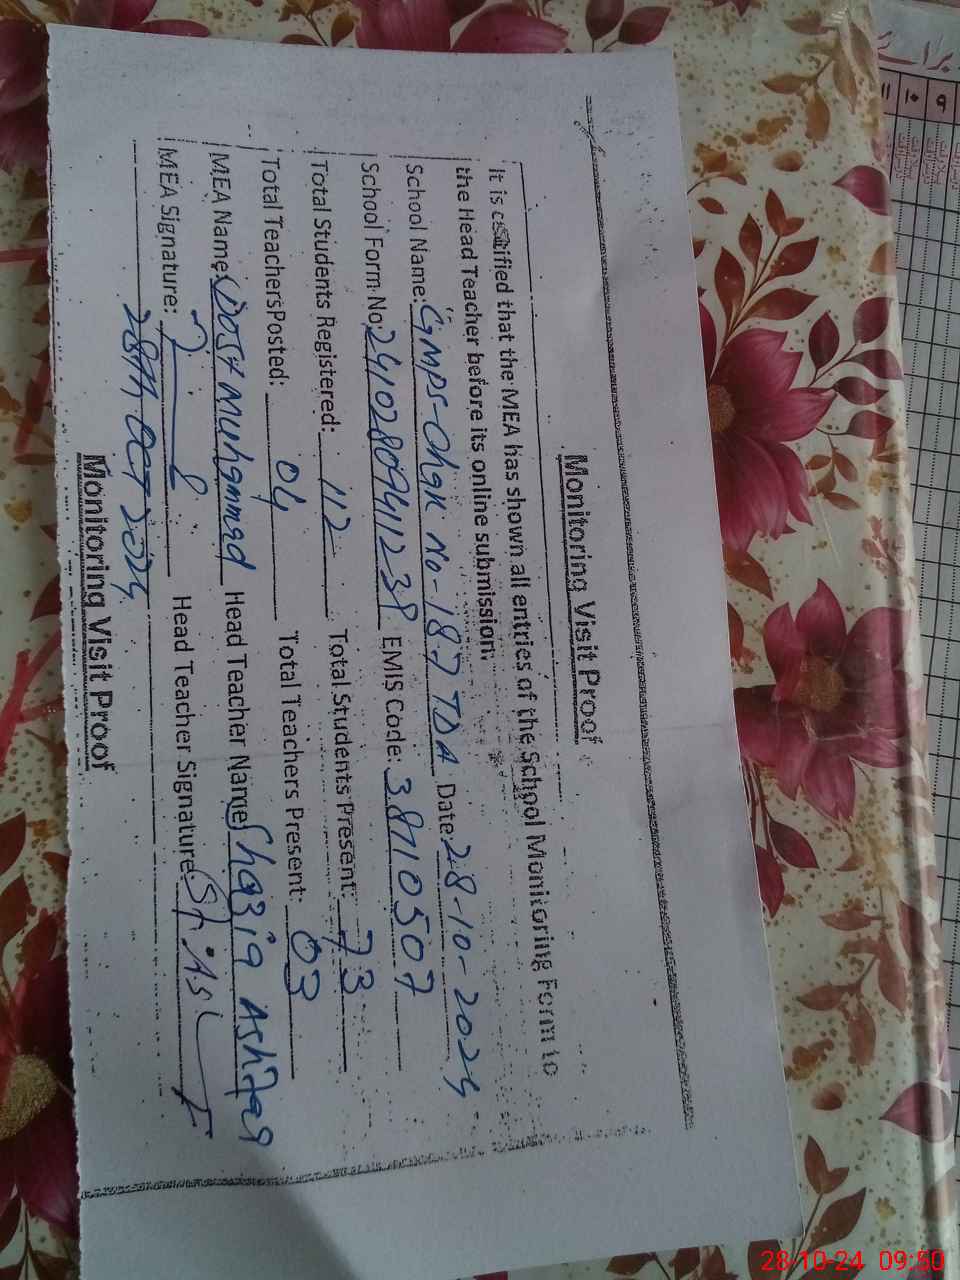 Monitoring Visit Proof
It is certified that the MEA has shown all entries of the School Monitoring Form to
the Head Teacher before its online submission.
School Name: GMPS-Chak No-187 TDA Date: 28-10-2024
School Form No: EMIS Code: 38710507
Total Students Registered: 112 Total Students Present: 73
Total Teachers Posted: 04 Total Teachers Present: 03
MEA Name: Dost Muhammad Head Teacher Name: Shazia Ashfaq
MEA Signature: Head Teacher Signature:
28th OCT 2024
Monitoring Visit Proof
28-10-24 09:50